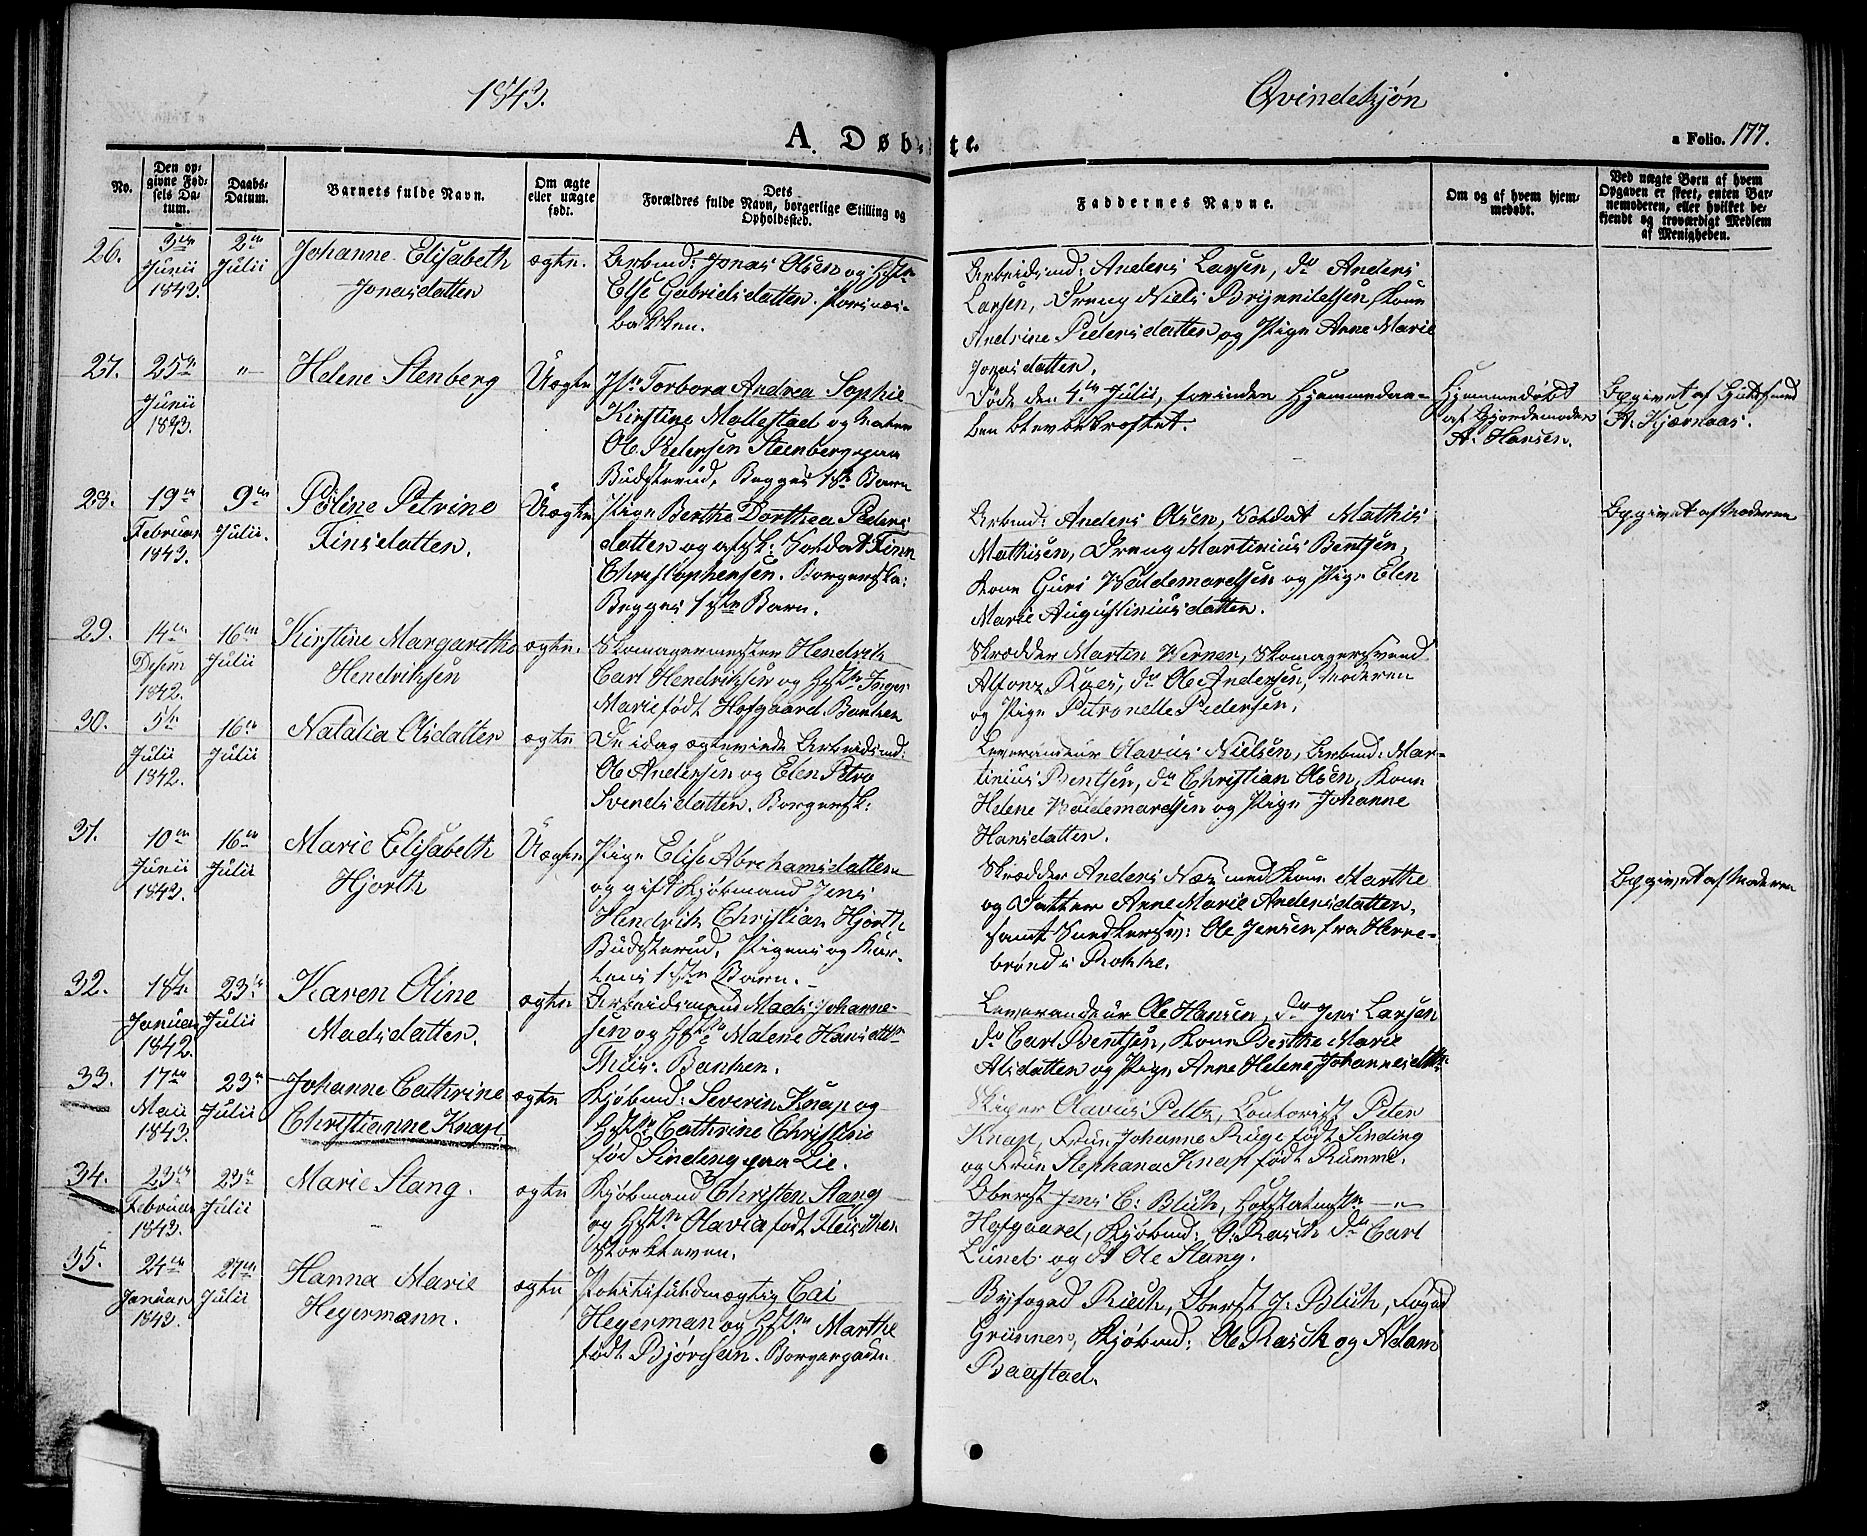 1843.
Qvindekjøn
A. Døbte.
a Folio. 177.
No.
Den opgivne Fødsels Datum.
Daabs-Datum.
Barnets fulde Navn.
Om ægte eller uægte født.
Dets Forældres fulde Navn, borgerlige Stilling og Opholdssted.
Faddernes Navne.
Om og af hvem hjemmedøbt.
Ved uægte Børn af hvem Opgaven er skeet, enten Barnemoderen, eller hvilket bekjendt og troværdigt Medlem af Menigheden.
26.
3die Junii 1843.
2den Julii
Johanne Elisabeth
Jonasdatter
ægte.
Arbmd: Jonas Olsen og Hstr
Else Gabrielsdatter.
bakken.
Arbeidsmd: Anders Larsen, do Anders
Larsen, Dreng Niels Brynnildsen, Kone
Andrine Pedersdatter og Pige Anne Marie
Jonasdatter.
27.
25de Junii 1843.
"
Helene Stenberg
Uægte
Torbora Andrea Sophie
Kirstine Mollestad og
Ole Pedersen Steenberg paa
Budsterud, Begges 1ste Barn
Døde den 4de Julii, forinden Hjemmedaa-
ben blev bekræftet.
Hjemmedøbt
af Gjordemoder
A. Hansen.
Opgivet af
A. Kjærnaas.
28.
19de Februar 1843.
9de Julii.
Poline Petrine
Finsdatter.
Uægte
Pige Berthe Dorthea Peders
datter og afsk: Soldat Finn
Christophersen. Borgersk:
Begges 1ste Barn.
Arbmd: Anders Olsen, Soldat Mathis
Mathisen, Dreng Martinius Bentsen,
Kone Guri Woldemarsen og Pige Elen
Marie Augustiniusdatter.
Opgivet af Moderen
29.
14de Desem 1842.
16de Julii
Kirstine Margarethe
Hendriksen
ægte.
Skomagermester Hendrik
Carl Hendriksen og Hstr Inger
Marie født Hofgaard. Banken
Skrædder Martin Werner, Skomagersvend
Alfonz Roes, do Ole Andersen, Moderen
og Pige Petronelle Pedersen.
30.
5te Julii 1842.
16de Julii
Natalia Olsdatter
ægte
De idag ægteviede Arbeidsmd:
Ole Andersen og Elen Petro
Svendsdatter. Borgersk:
Leverandeur Olavus Nielsen, Arbmd: Mar-
tinius Bentsen, do Christian Olsen, Kone
Helene Woldemarsen og Pige Johanne
Hansdatter.
31.
10de Junii 1843.
16de Julii
Marie Elisabeth
Hjorth
Uægte
Pige Elise Abrahamsdatter
og gift Kjøbmand Jens
Hendrik Christian Hjorth
Budsterud. Pigens og Kar-
lens 1ste Barn.
Skrædder Anders Næs med Kone Marthe
og Datter Anne Marie Andersdatter,
samt Snedkersv: Ole Jensen fra Herre-
brønd i Rokke.
Opgivet af Moderen
32.
18de Januar 1842.
23de Julii
Karen Oline
Madsdatter.
ægte
Arbeidsmand Mads Johanne-
sen og Hstr Malene Hansdttr
Banken.
Leverandeur Ole Hansen, do Jens Larsen
do Carl Bentsen, Kone Berthe Marie
Olsdatter og Pige Anne Helene Johannesdttr:
33.
17de Maii 1843.
23de Julii
Johanne Cathrine
Christianne Knap.
ægte
Kjøbmd: Severin Knap og
Hstr Cathrine Christine
fød Sinding paa Lie.
Skiper Olavus Peltz, Contorist Peter
Knap, Frue Johanne Ruge født Sinding
og Frue Stephana Knap født Rumme.
34.
23de Februar 1843.
23de Julii
Marie Stang.
ægte
Kjøbmand Christen Stang
og Hstr Olavia født Fleischer
Storkleven.
Oberst Jens C: Blich,
Hofgaard, Kjøbmd: O. Rasch do Carl
Lund og do Ole Stang.
35.
24de Januar 1843.
27de Julii
Hanna Marie
Hegermann.
ægte
Politifuldmægtig Cai
Hegerman og Hstr Marthe
født Bjørgsen. Borgergaden
Byfoged Riech, Oberst J. Blich, Foged
Grünner, Kjøbmd: Ole Rasch og Adam
Baastad.